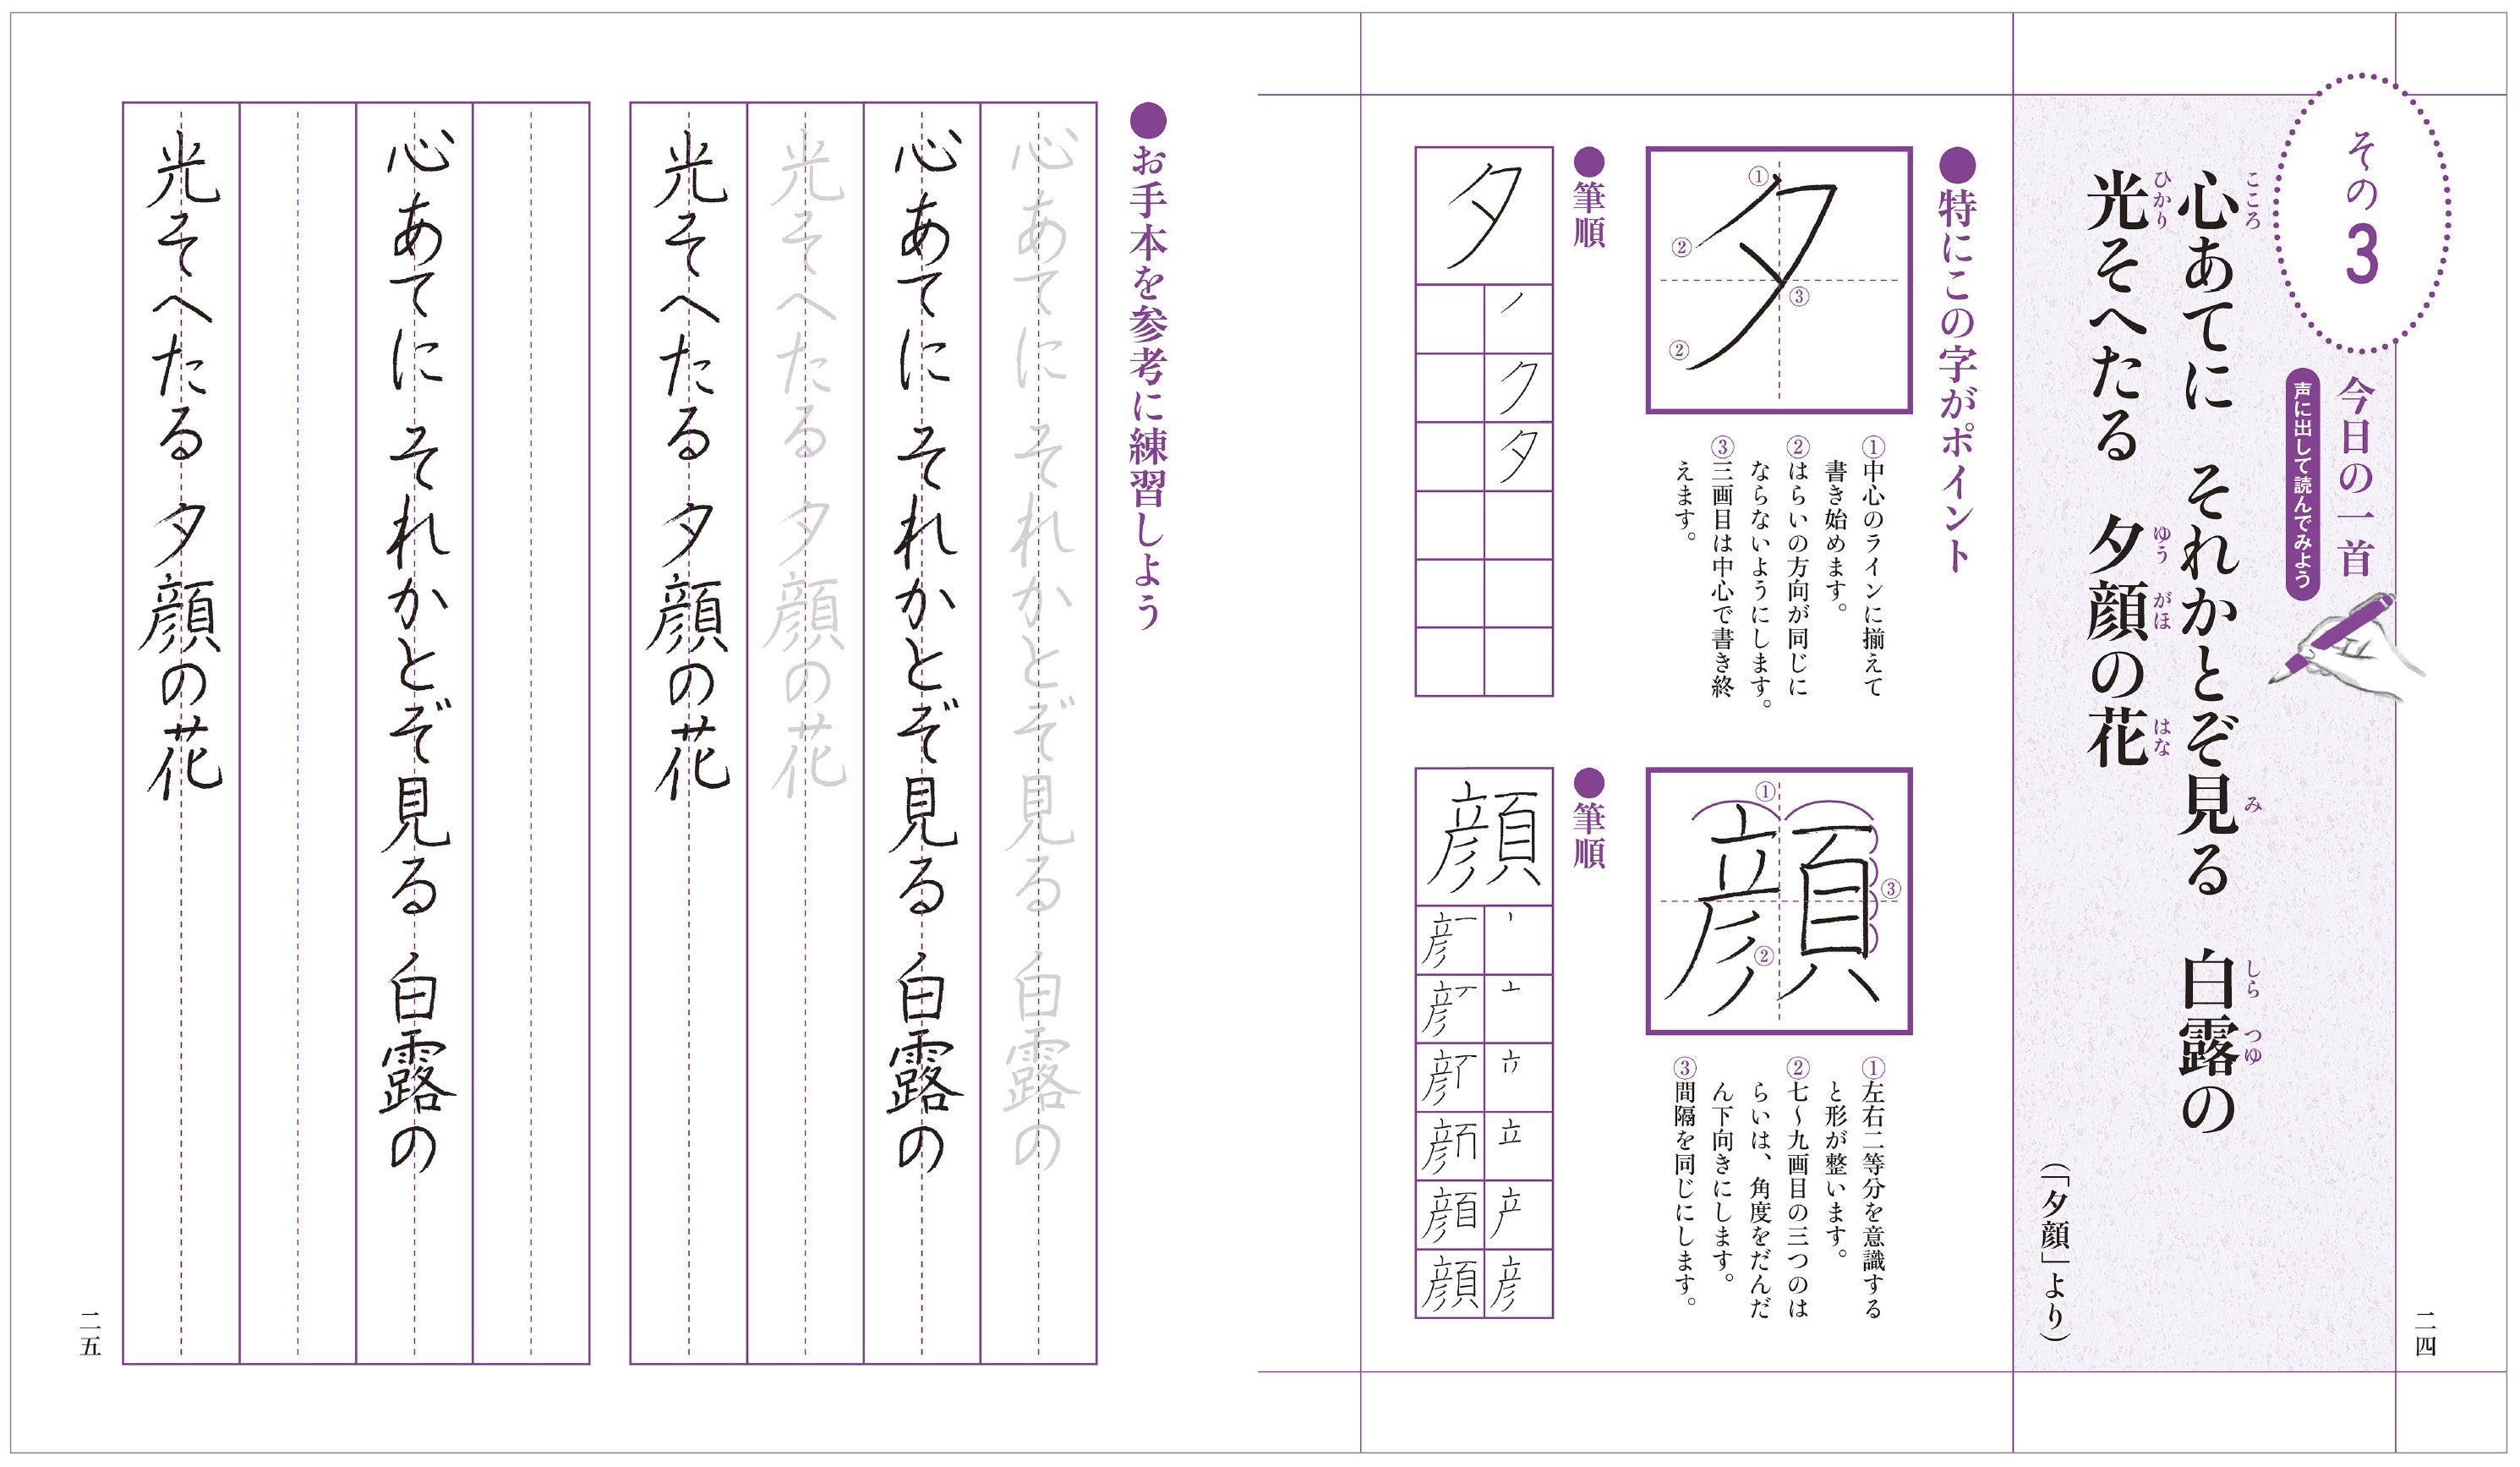 その3
今日の一首
声に出して読んでみよう
心あてに　それかとぞ見る　白露の
こころ
み
しら
つゆ
光そへたる　夕顔の花
ひかり
ゆう
がほ
はな
（「夕顔」より）
二四
●特にこの字がポイント
夕
①
②
②
③
①中心のラインに揃えて
書き始めます。
②はらいの方向が同じに
ならないようにします。
③三画目は中心で書き終
えます。
●筆順
夕
ノ
ク
夕
顔
①
②
③
①左右二等分を意識する
と形が整います。
②七〜九画目の三つのは
らいは、角度をだんだ
ん下向きにします。
③間隔を同じにします。
●筆順
顔
●お手本を参考に練習しよう
心あてに　それかとぞ見る　白露の
心あてに　それかとぞ見る　白露の
光そへたる　夕顔の花
光そへたる　夕顔の花
心あてに　それかとぞ見る　白露の
光そへたる　夕顔の花
二五